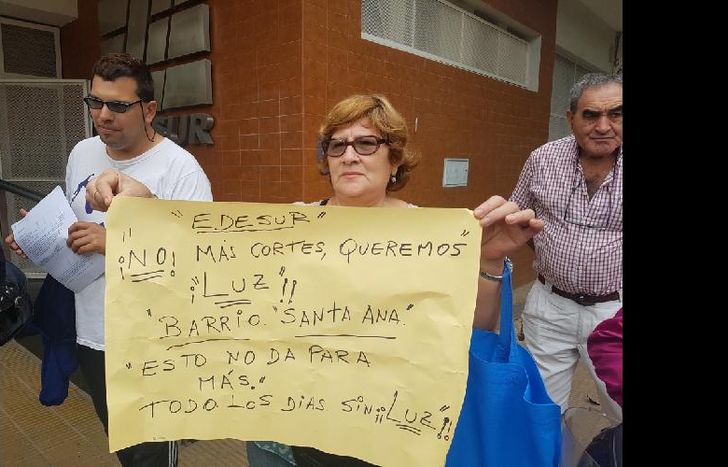 SUR
"EDESUR"
"¡NO! MÁS CORTES, QUEREMOS"
"¡¡LUZ"!!
"BARRIO "SANTA ANA."
"ESTO NO DA PARA
MÁS."
TODO LOS DIAS SIN ¡¡LUZ"!!